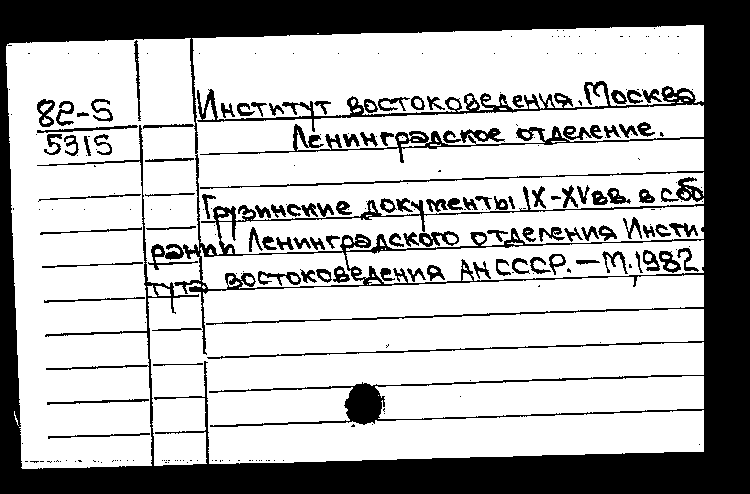 82-5
5315
Институт востоковедения. Москва.
Ленинградское отделение.
Грузинские документы IX-XV вв. в сбо
рании Ленинградского отделения Инсти-
тута востоковедения АН СССР. — М., 1982.